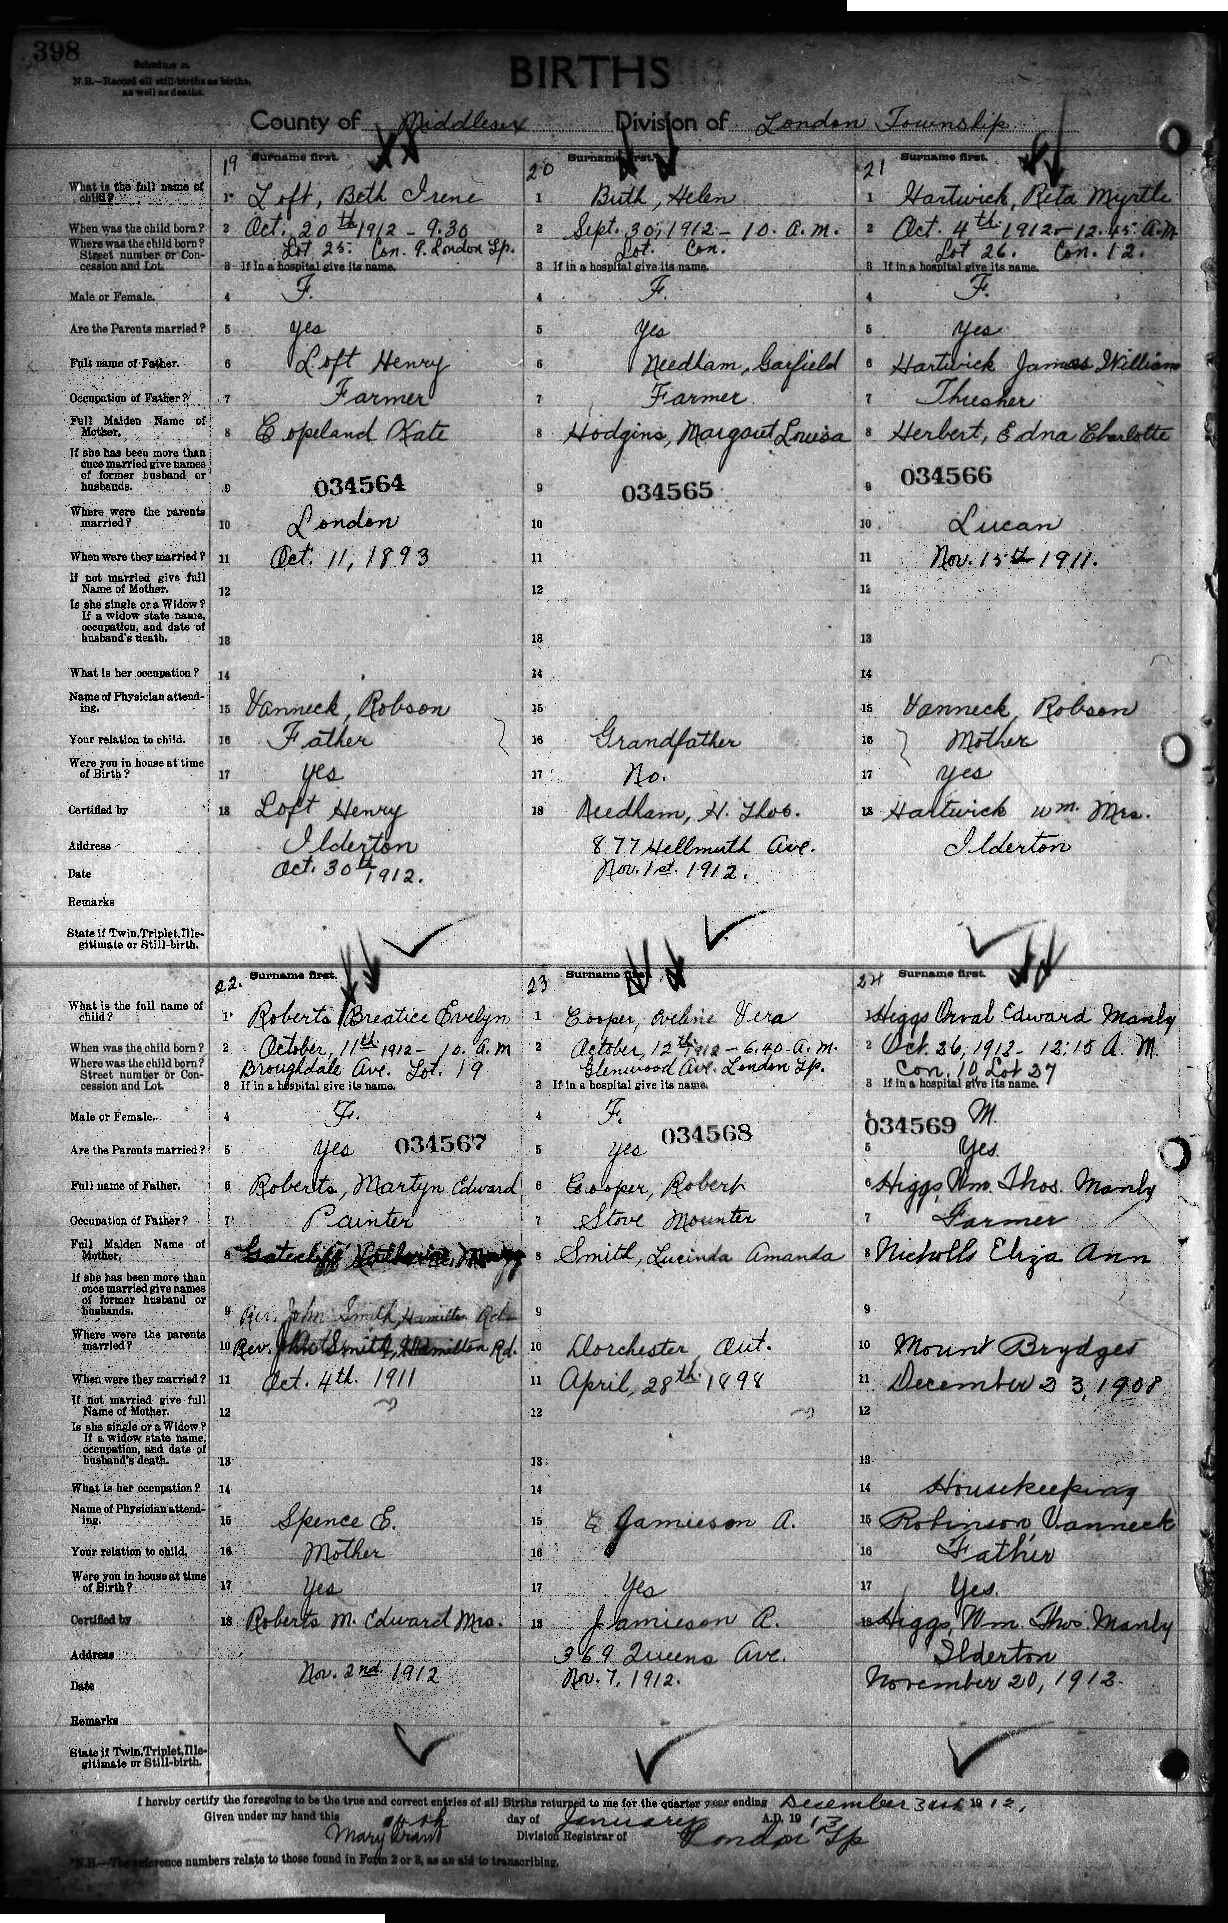 398
Schedule A.
N.B.—Record all still-births as births,
as well as deaths.
BIRTHS
County of Middlesex Division of London Township
19 Surname first.
20 Surname first.
21 Surname first.
What is the full name of child? 1 Loft, Beth Irene 1 Buth, Helen 1 Hartwick, Reta Myrtle
When was the child born? 2 Oct. 20th 1912 - 9.30 2 Sept. 30, 1912 - 10. A.M. 2 Oct. 4th 1912 - 12.45 A.M
Where was the child born? Street number or Concession and Lot. Lot 25. Con. 9. London Tp. Lot. Con. Lot 26. Con. 12.
3 If in a hospital give its name. 3 If in a hospital give its name. 3 If in a hospital give its name.
Male or Female. 4 F. 4 F. 4 F.
Are the Parents married? 5 yes 5 Yes 5 Yes
Full name of Father. 6 Loft Henry 6 Needham, Garfield 6 Hartwick James William
Occupation of Father? 7 Farmer 7 Farmer 7 Thresher
Full Maiden Name of Mother. 8 Copeland Kate 8 Hodgins, Margaret Louisa 8 Herbert, Edna Charlotte
If she has been more than once married give names of former husband or husbands. 9 034564 9 034565 9 034566
Where were the parents married? 10 London 10 10 Lucan
When were they married? 11 Oct. 11, 1893 11 11 Nov. 15th 1911.
If not married give full Name of Mother. 12 12 12
Is she single or a Widow? If a widow state name, occupation, and date of husband's death. 13 13 13
What is her occupation? 14 14 14
Name of Physician attending. 15 Vanneck, Robson 15 15 Vanneck, Robson
Your relation to child. 16 Father 16 Grandfather 16 Mother
Were you in house at time of Birth? 17 yes 17 No. 17 yes
Certified by 18 Loft Henry 18 Needham, H. Thos. 18 Hartwick Wm. Mrs.
Address Ilderton 877 Hellmuth Ave. Ilderton
Date Oct. 30th 1912. Nov. 1st. 1912.
Remarks
State if Twin, Triplet, Illegitimate or Still-birth.
22. Surname first.
23 Surname first.
24 Surname first.
What is the full name of child? 1 Roberts Breatice Evelyn 1 Cooper, Oveline Vera 1 Higgs Orval Edward Manly
When was the child born? 2 October, 11th 1912 - 10. A.M 2 October, 12th 1912 - 6.40 A.M. 2 Oct. 26, 1912 - 12:15 A.M.
Where was the child born? Street number or Concession and Lot. Broughdale Ave. Lot. 19 Glenwood Ave. London Tp. Con. 10 Lot 27
3 If in a hospital give its name. 3 If in a hospital give its name. 3 If in a hospital give its name.
Male or Female. 4 F. 4 F. 4 M.
Are the Parents married? 5 yes 034567 5 yes 034568 5 Yes. 034569
Full name of Father. 6 Roberts, Martyn Edward 6 Cooper, Robert 6 Higgs Wm. Thos. Manly
Occupation of Father? 7 Painter 7 Stove Mounter 7 Farmer
Full Maiden Name of Mother. 8 Gatecliff Catherine, Mary 8 Smith, Lucinda Amanda 8 Nicholls Eliza Ann
If she has been more than once married give names of former husband or husbands. 9 Rev. John Smith, Hamilton Rd. 9 9
Where were the parents married? 10 Rev. John Smith, Hamilton Rd. 10 Dorchester, Ont. 10 Mount Brydges
When were they married? 11 Oct. 4th. 1911 11 April, 28th. 1898 11 December 23, 1908
If not married give full Name of Mother. 12 12 12
Is she single or a Widow? If a widow state name, occupation, and date of husband's death. 13 13 13
What is her occupation? 14 14 14 Housekeeping
Name of Physician attending. 15 Spence E. 15 Jamieson A. 15 Robinson, Vanneck
Your relation to child. 16 Mother 16 16 Father
Were you in house at time of Birth? 17 Yes 17 Yes 17 Yes.
Certified by 18 Roberts M. Edward Mrs. 18 Jamieson A. 18 Higgs, Wm. Thos. Manly
Address 369 Queens Ave. Ilderton
Date Nov. 2nd. 1912 Nov. 7, 1912. November 20, 1912.
Remarks
State if Twin, Triplet, Illegitimate or Still-birth.
I hereby certify the foregoing to be the true and correct entries of all Births returned to me for the quarter year ending December 31st 1912.
Given under my hand this day of January A.D. 1913
Mary Grant Division Registrar of London Tp
*N.B.—The reference numbers relate to those found in Form 2 or 3, as an aid to transcribing.